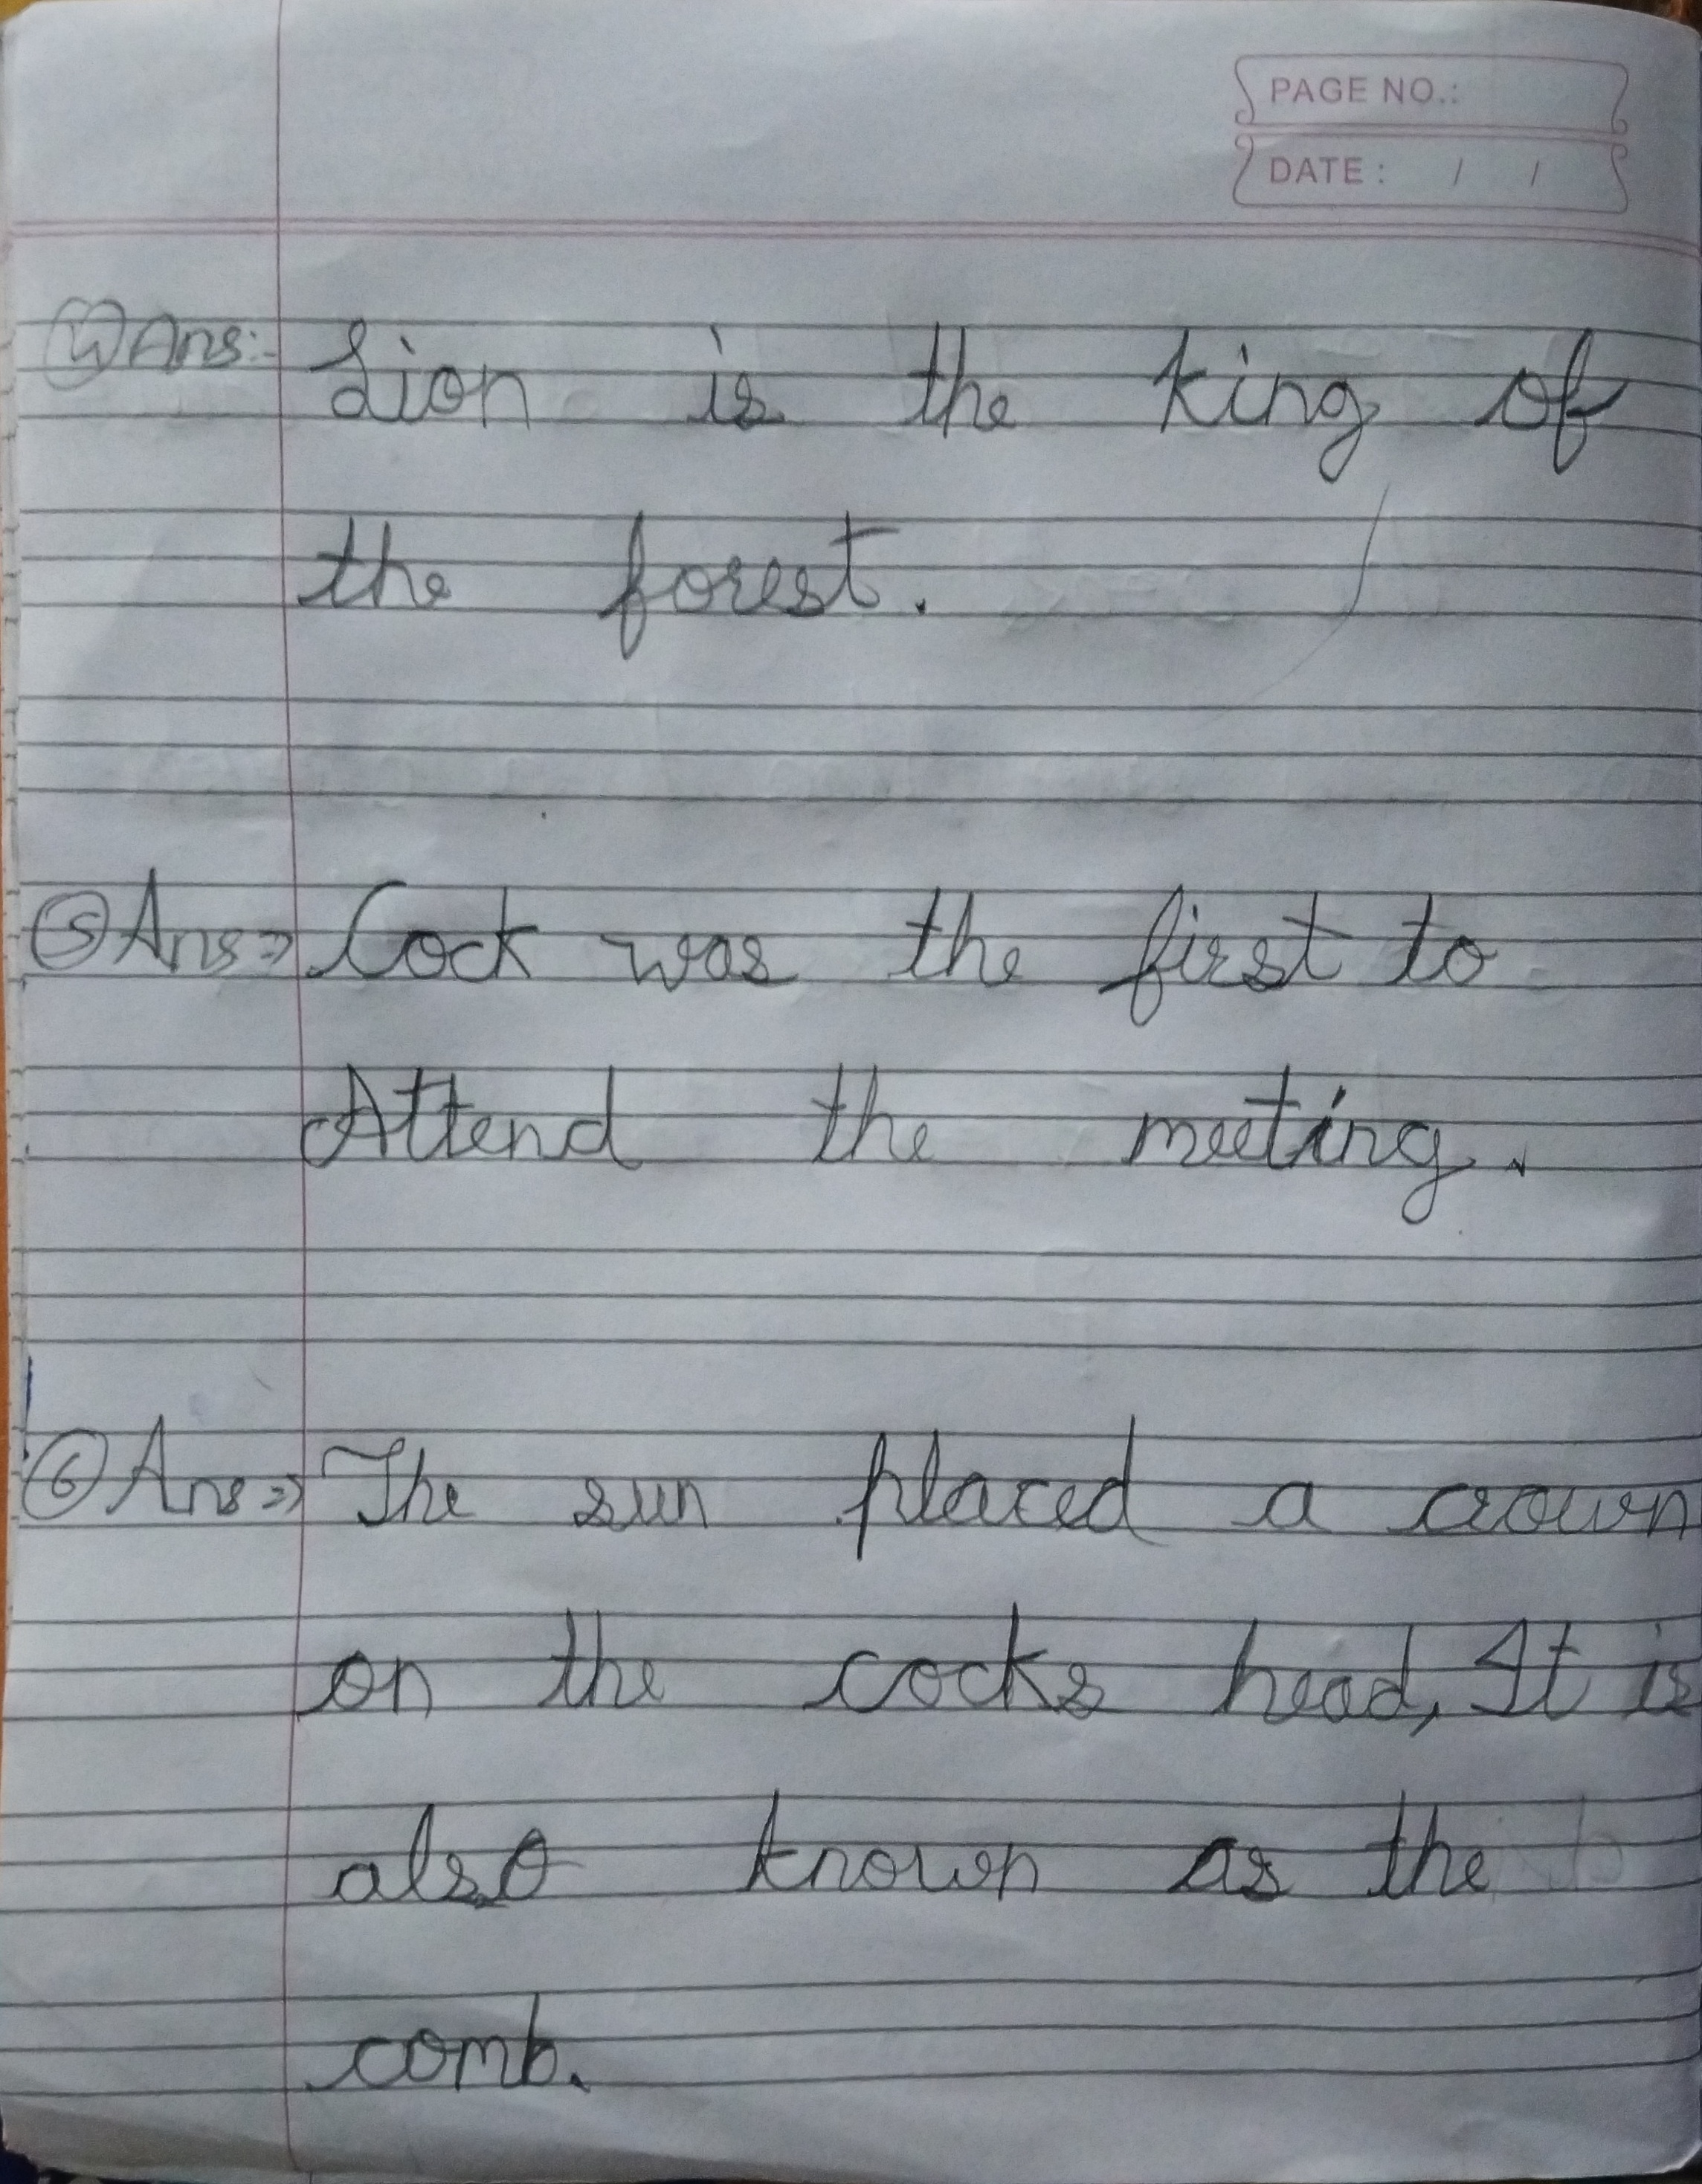 PAGE NO.:
DATE : / /
4 Ans:- Lion is the king of
the forest.
5 Ans⇒ Cock was the first to
Attend the meeting.
6 Ans⇒ The sun placed a crown
on the cocks head, It is
also known as the
comb.